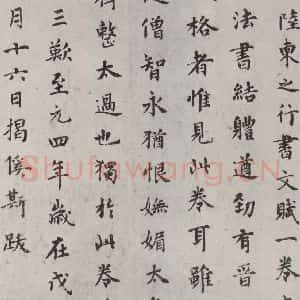 陸柬之行書文賦一卷
法書結體遒勁有晉
格者惟見此卷耳雖
僧智永猶恨嫵媚太
整太過也獨於此卷
三歎至元四年歲在戊
月十六日揭傒斯跋
Shufawang.cn